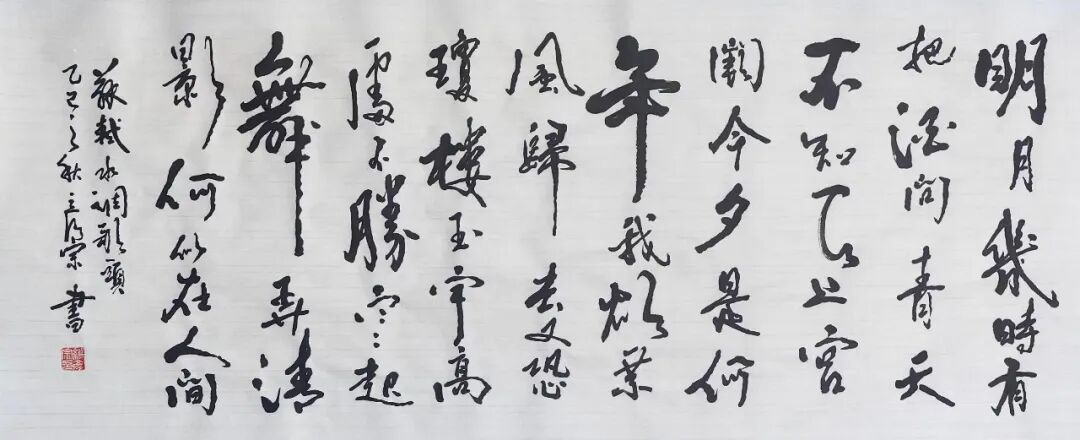 明月幾時有
把酒問青天
不知天上宮
闕今夕是何
年我欲乘
風歸去又恐
瓊樓玉宇高
處不勝寒起
舞弄清
影何似在人間
蘇軾水調歌頭
乙巳之秋宗書